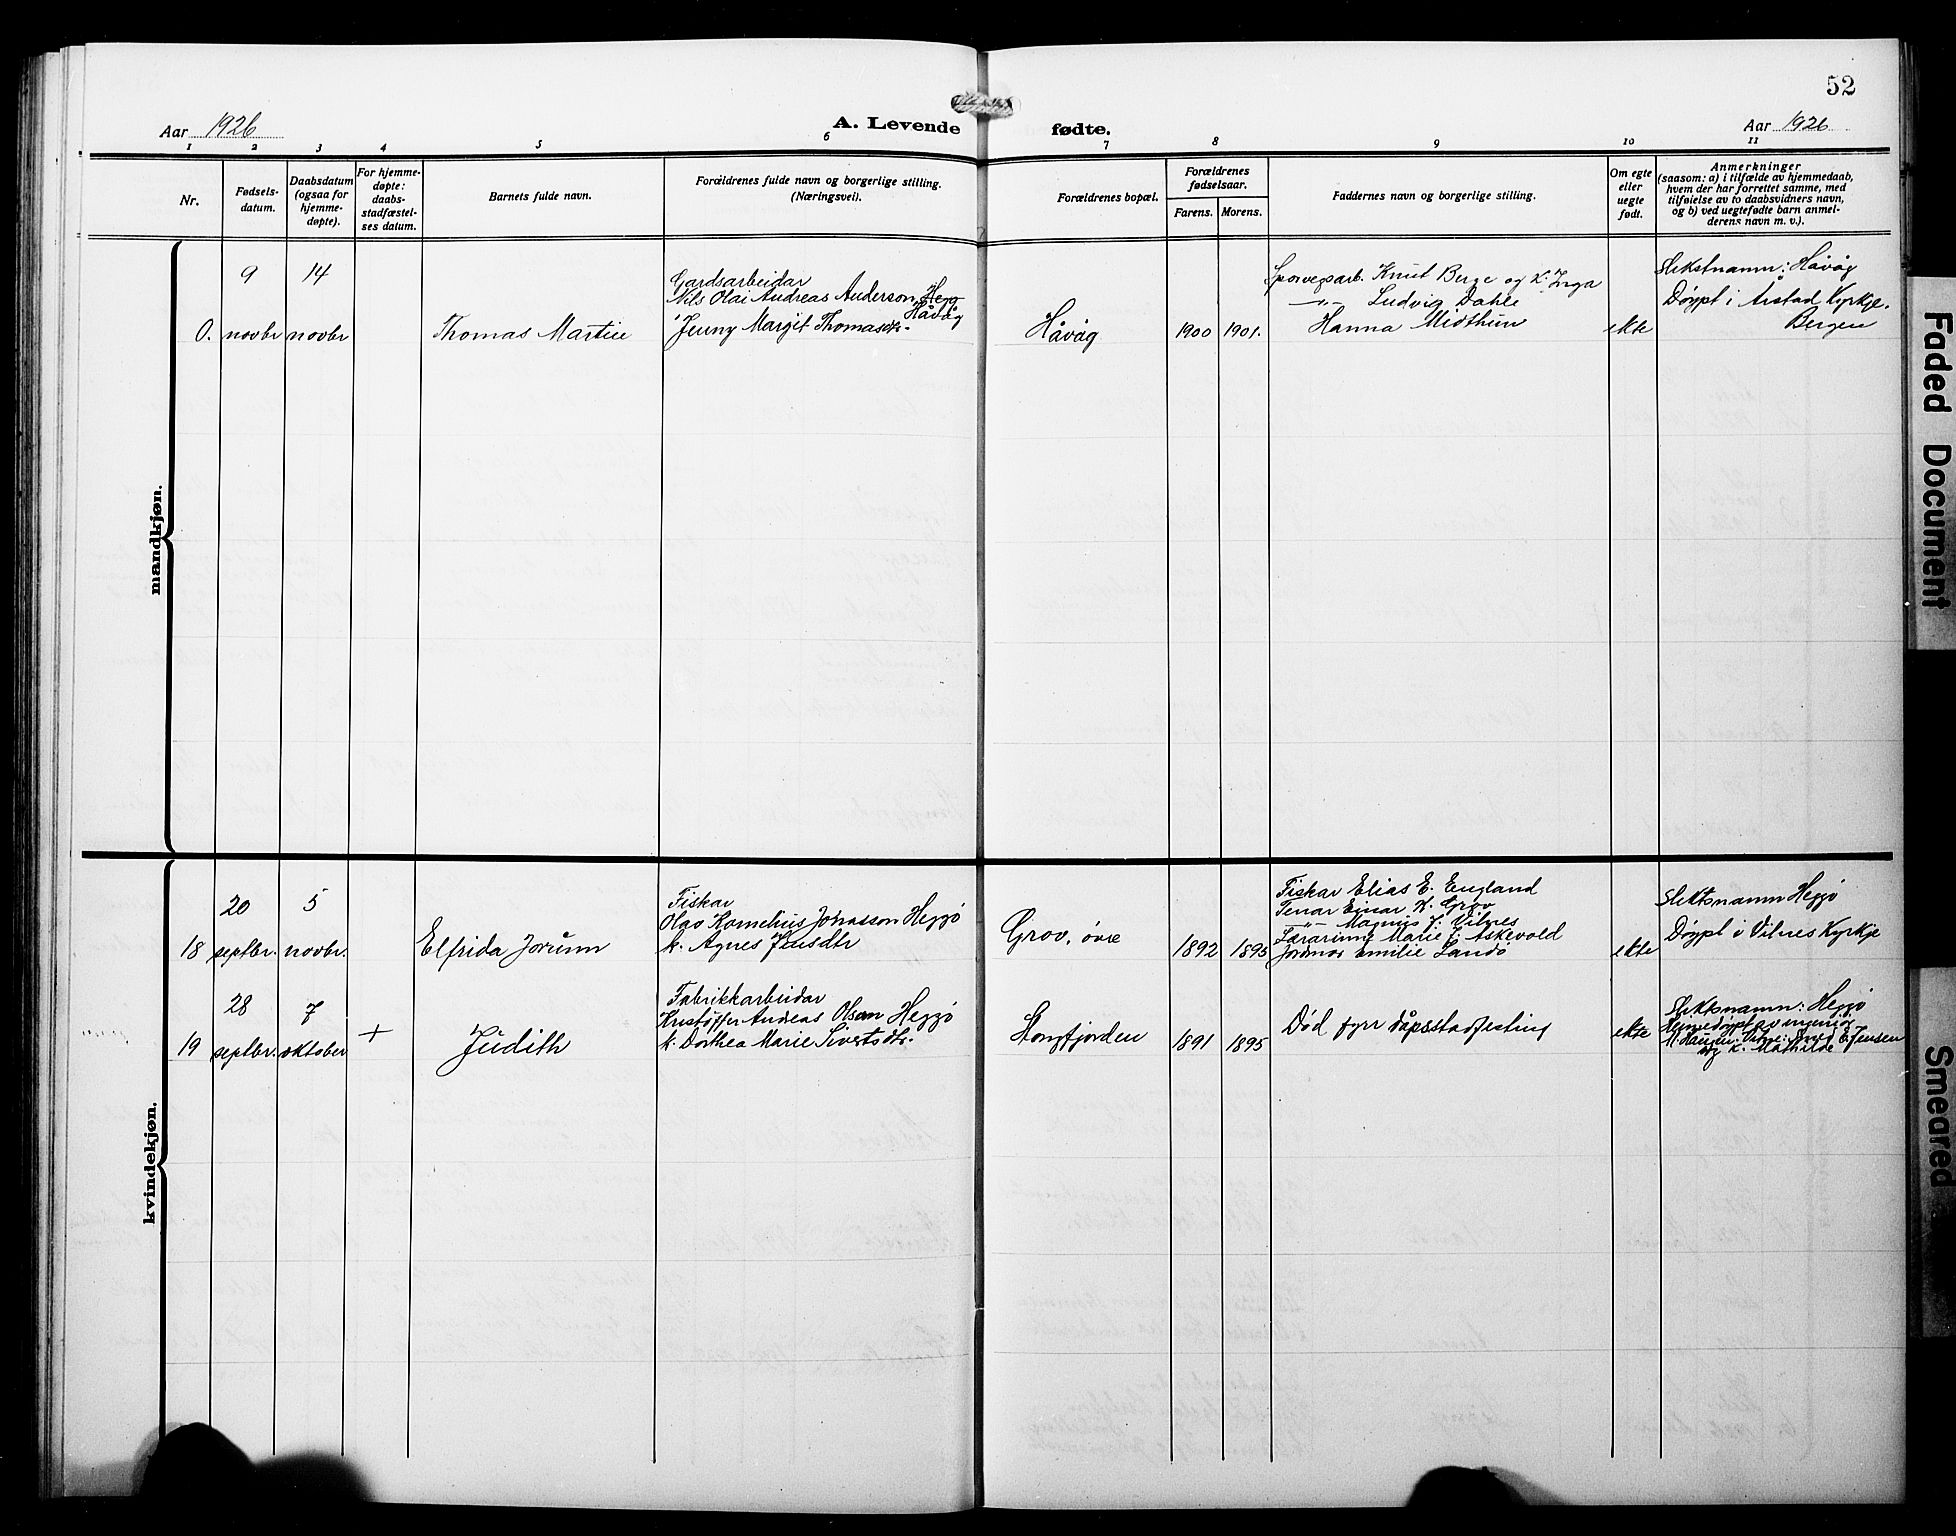 52
Aar 1926
A. Levende fødte.
Aar 1926
1 2 3 4 5 6 7 8 9 10 11
Nr.
Fødsels-
datum.
Daabsdatum
(ogsaa for
hjemme-
døpte).
For hjemme-
døpte:
daabs-
stadfæstel-
ses datum.
Barnets fulde navn.
Forældrenes fulde navn og borgerlige stilling.
(Næringsvei).
Forældrenes bopæl.
Forældrenes
fødselsaar.
Farens. Morens.
Faddernes navn og borgerlige stilling.
Om egte
eller
uegte
født.
Anmerkninger
(saasom: a) i tilfælde av hjemmedaab,
hvem der har forrettet samme, med
tilføielse av to daabsvidners navn,
og b) ved uegtefødte barn anmel-
derens navn m. v.).
mandkjøn.
0.
9
novbr
14
novbr
Thomas Martin
Gardsarbeidar
Nils Olai Andreas Anderson Hegg
Håvåg
Jenny Margit Thomasdtr.
Håvåg
1900 1901.
Sporvegsarb. Knut Berge og k. Inga
-"- Ludvig Dahle
Hanna Midthun
ekte
Slektsnamn: Håvåg
Døypt i Årstad Kyrkje.
Bergen
kvindekjøn.
18
20
septbr.
5
novbr.
Elfrida Jorunn
Fiskar
Olav Kornelius Johnsson Heggø
k. Agnes Jensdtr
Grov, øvre
1892 1895
Fiskar Elias E. England
Tenar Einar K. Grov
-"- Magnus J. Vilnes
Lærarinne Marie J. Askevold
Jordmor Emilie Sandø
ekte
Slektsnamn Heggø
Døypt i Vilnes Kyrkje
19
28
septbr.
7
oktober
+
Judith
Fabrikkarbeidar
Kristoffer Andreas Olsen Heggø
k. Dorthea Marie Sivertsdtr.
Hongfjorden
1891 1895
Død fyrr dåpsstadfesting
ekte
Slektsnamn: Heggø
Heimedøypt av ingeniør
M. Haugen. Vitne: E. Jensen
og k. Mathilde
Faded Document
Smeared